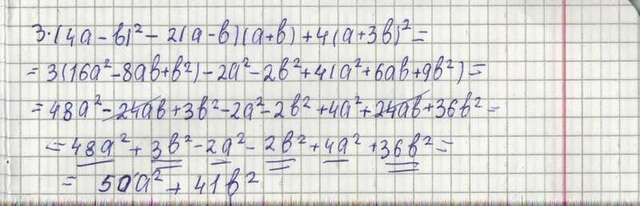 3·(4a-b)²-2(a-b)(a+b)+4(a+3b)²=
=3(16a²-8ab+b²)-2a²-2b²+4(a²+6ab+9b²)=
=48a²-24ab+3b²-2a²-2b²+4a²+24ab+36b²=
=48a²+3b²-2a²-2b²+4a²+36b²=
= 50a²+41b²